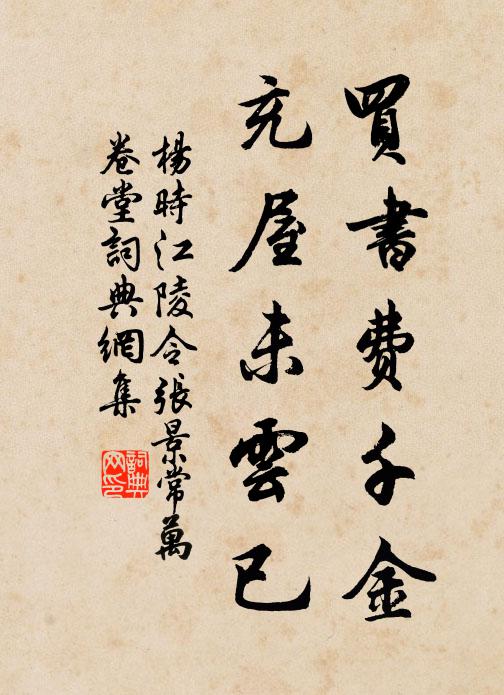 買書費千金
充屋未雲已
楊時江陵令張景常萬
卷堂詞典網集
詞典
网印